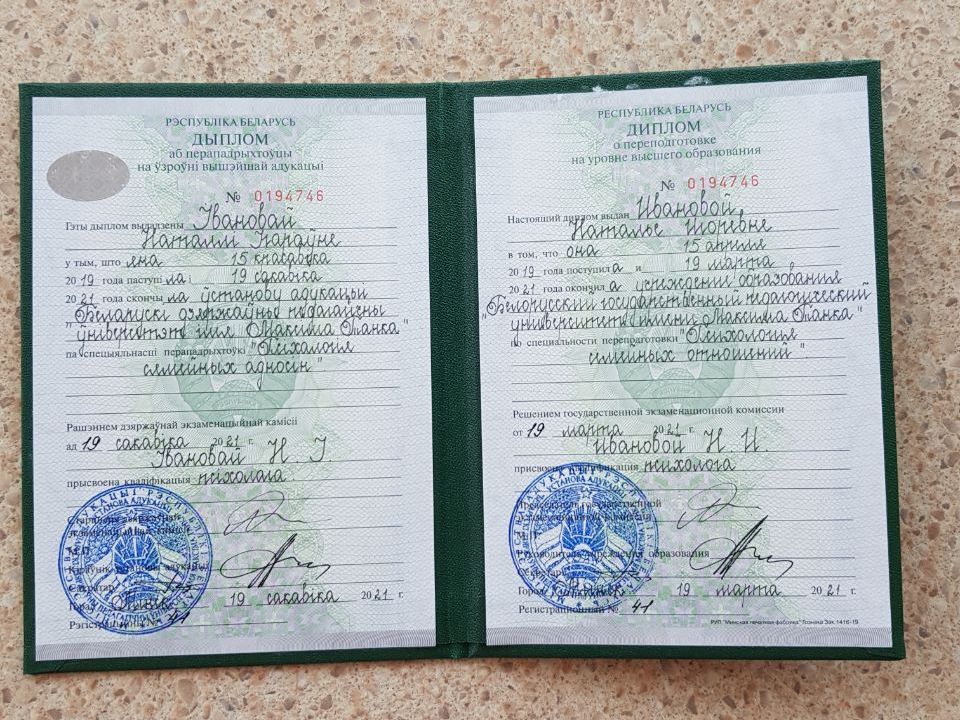 РЭСПУБЛІКА БЕЛАРУСЬ
ДЫПЛОМ
аб перападрыхтоўцы
на ўзроўні вышэйшай адукацыі
№ 0194746
Гэты дыплом выдадзены Івановай
Наталлі Ігараўне
у тым, што яна 15 красавіка
2019 года паступіла і 19 сакавіка
2021 года скончыла ўстанову адукацыі
"Беларускі дзяржаўны педагагічны
ўніверсітэт імя Максіма Танка"
па спецыяльнасці перападрыхтоўкі "Псіхалогія
сямейных адносін"
Рашэннем дзяржаўнай экзаменацыйнай камісіі
ад 19 сакавіка 2021 г.
Івановай Н. І
прысвоена кваліфікацыя псіхолага
Старшыня дзяржаўнай
экзаменацыйнай камісіі
М.П.
Кіраўнік установы адукацыі
Сакратар
Горад Мінск 19 сакавіка 2021 г.
Рэгістрацыйны № 41
РЕСПУБЛИКА БЕЛАРУСЬ
ДИПЛОМ
о переподготовке
на уровне высшего образования
№ 0194746
Настоящий диплом выдан Ивановой
Наталье Игоревне
в том, что она 15 апреля
2019 года поступила и 19 марта
2021 года окончила учреждение образования
"Белорусский государственный педагогический
университет имени Максима Танка"
по специальности переподготовки "Психология
семейных отношений".
Решением государственной экзаменационной комиссии
от 19 марта 2021 г.
Ивановой Н. И.
присвоена квалификация психолога
Председатель государственной
экзаменационной комиссии
М.П.
Руководитель учреждения образования
Секретарь
Город 19 марта 2021 г.
Регистрационный № 41
РУП "Минская печатная фабрика" Гознака Зак. 1416-19